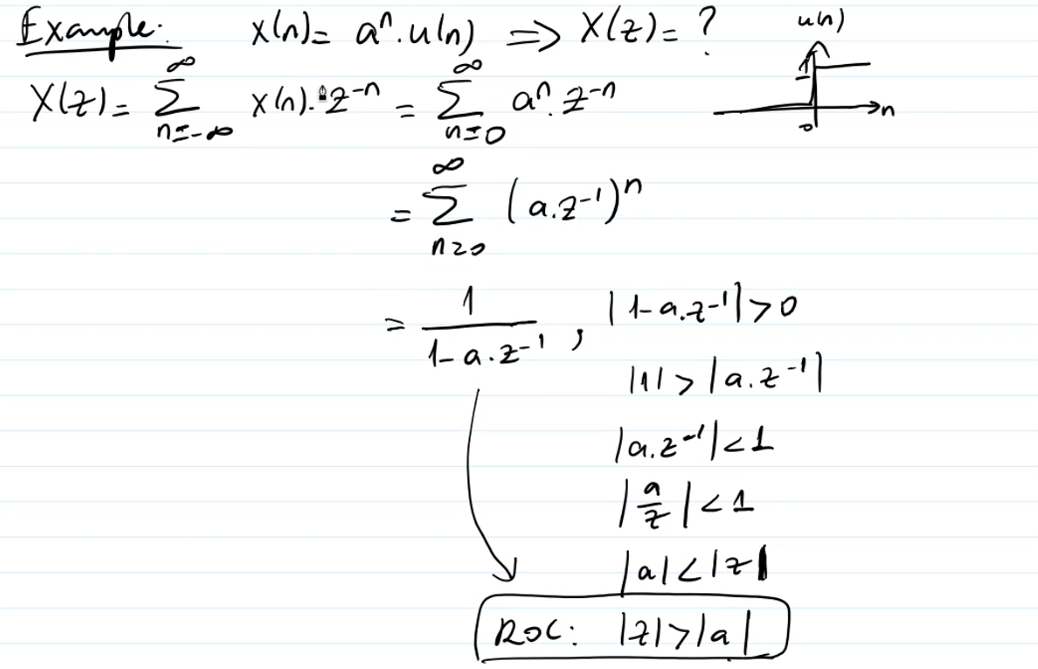 Example: x(n) = aⁿ.u(n) ⟹ X(z) = ?
u(n)
1
0
n
X(z) = ∑_{n=-∞}^{∞} x(n).z⁻ⁿ = ∑_{n=0}^{∞} aⁿ.z⁻ⁿ
= ∑_{n=0}^{∞} (a.z⁻¹)ⁿ
= 1/(1-a.z⁻¹) , |1-a.z⁻¹|>0
|1| > |a.z⁻¹|
|a.z⁻¹| < 1
|a/z| < 1
|a| < |z|
ROC: |z|>|a|